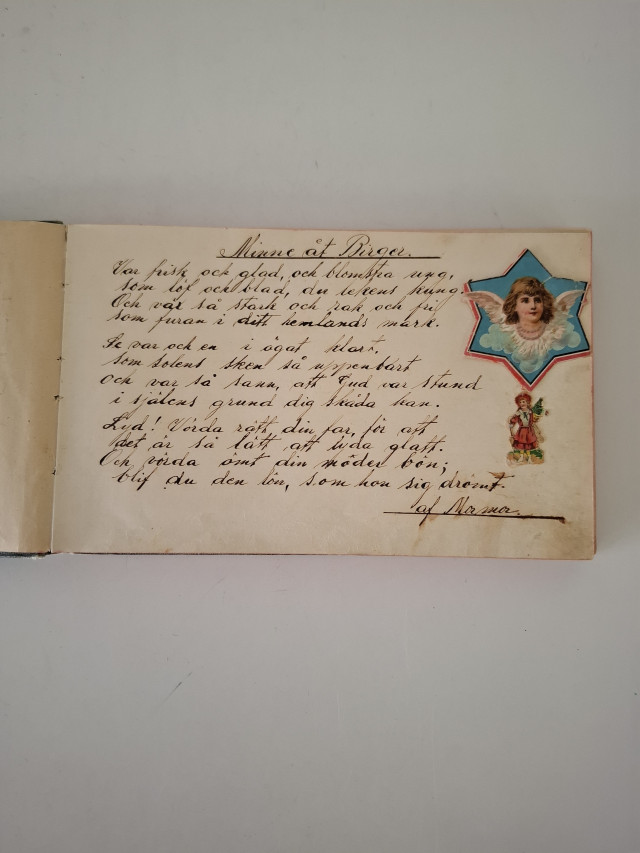 Minne åt Birger.
Var frisk och glad, och blomstra ung,
som löf och blad, du lekens kung.
Och väx så stark och rak och fri
som furan i ditt hemlands mark.
Se var och en i ögat klart,
som solens sken så uppenbart
och var så sann, att Gud var stund
i själens grund dig skåda kan.
Lyd! Vörda rätt, din far, för att
det är så lätt att lyda gladt.
Och vörda ömt din moders bön;
blif du den lön, som hon sig drömt.
af Mama.